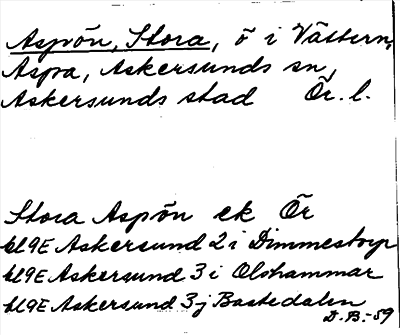 Aspön, Stora, ö i Vättern,
Aspa, Askersunds sn,
Askersunds stad Ör. l.
Stora Aspön ek Ör
bl 9E Askersund 2 i Dimmestorp
bl 9E Askersund 3 i Olshammar
bl 9E Askersund 3 j Bastedalen
D. B. -59